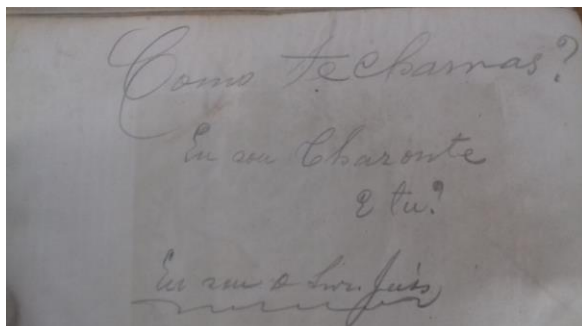 Como te chamas?
Eu sou Charonte
E tu?
Eu sou o Luis